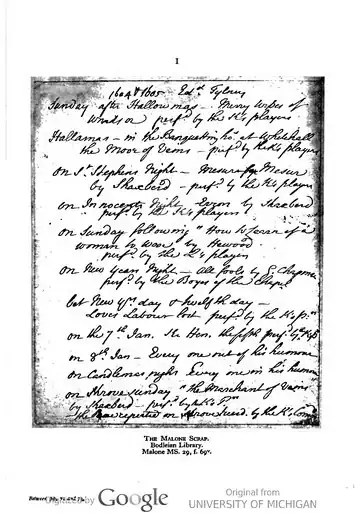 I
1604 & 1605 — Edd. Tylney
Sunday after Hallowmas — Merry Wives of
Windsor perfd by the K's players
Hallamas — in the Banquetting ho. at Whitehall
the Moor of Venis — perfd by the K's players
on St. Stephens Night — Mesure for Mesur
by Shaxberd — perfd by the K's players
on Innocents Night Errors by Shaxberd
perfd by the K's players
on Sunday following "How to Learn of a
woman to wooe by Hewood
perfd by the Q's players
on New Years Night — All fools by G. Chapman
perfd by the Boyes of the Chapel
bet New yrs. day & twelfth day —
Loves Labour Lost perfd by the K's p..
on the 7th Jan. K. Hen. the fifth perfd by the K's
on 8th Jan — Every one out of his humour
on Candlemas night Every one in his humour
on Shrove sunday "the Merchant of Venis"
by Shaxberd — perfd by the K's
the same repeated on Shrove tuesd. by the K's
THE MALONE SCRAP.
Bodleian Library.
Malone MS. 29, f. 69v.
Between
Digitized by Google
Original from
UNIVERSITY OF MICHIGAN